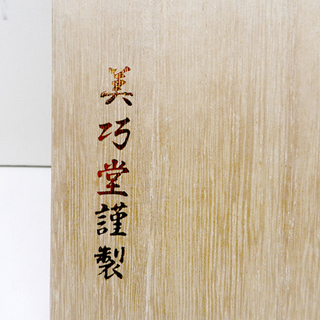 美巧堂謹製